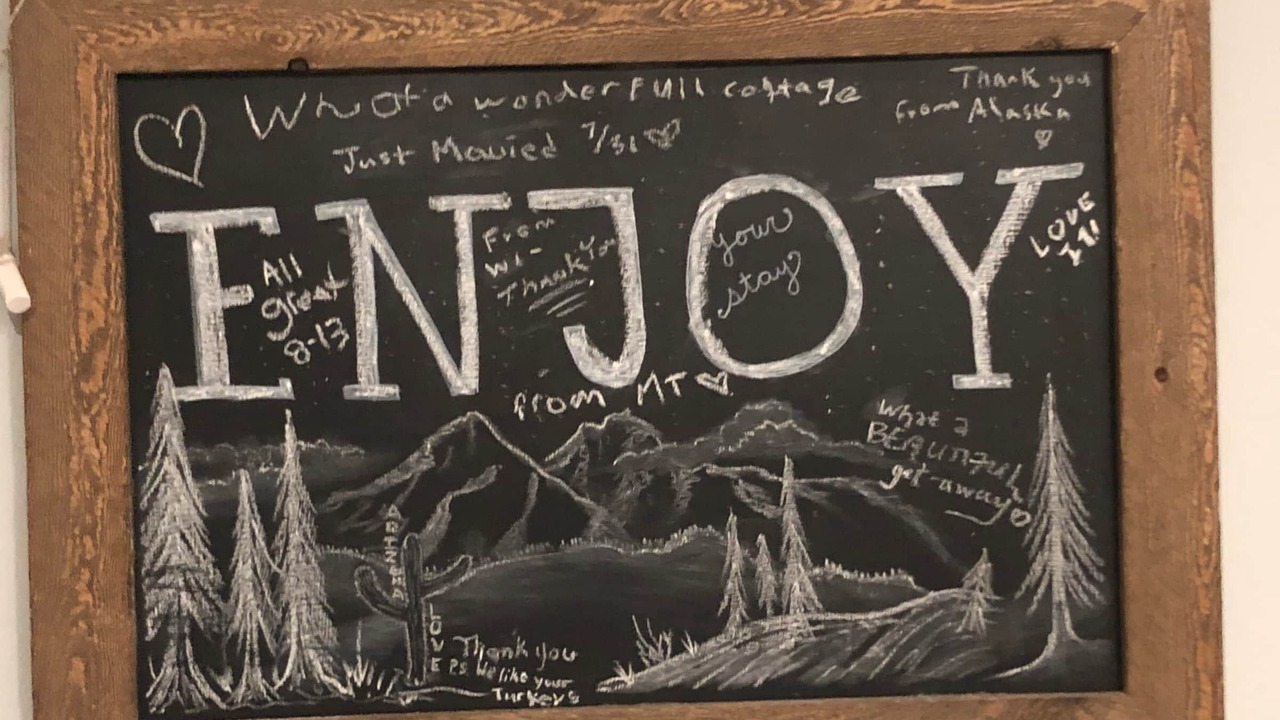 What a wonderFull cottage
Just Married 7/31
Thank you
from Alaska
ENJOY
All
great
8-13
From
WI-
Thank You
your
stay
LOVE
IT!!
from MT
What a
BEAUTIFUL
get-away
LOVE
Thank you
P.S. We like your
Turkeys